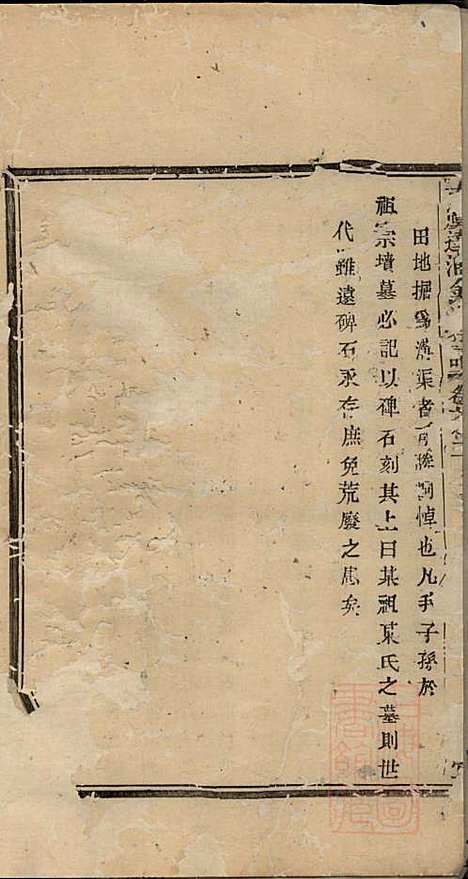 田地掘爲溝渠者可勝惻悼也凡我子孫於
祖宗墳墓必記以碑石刻其上曰某祖某氏之墓則世
代雖遠碑石永存庶免荒廢之患矣